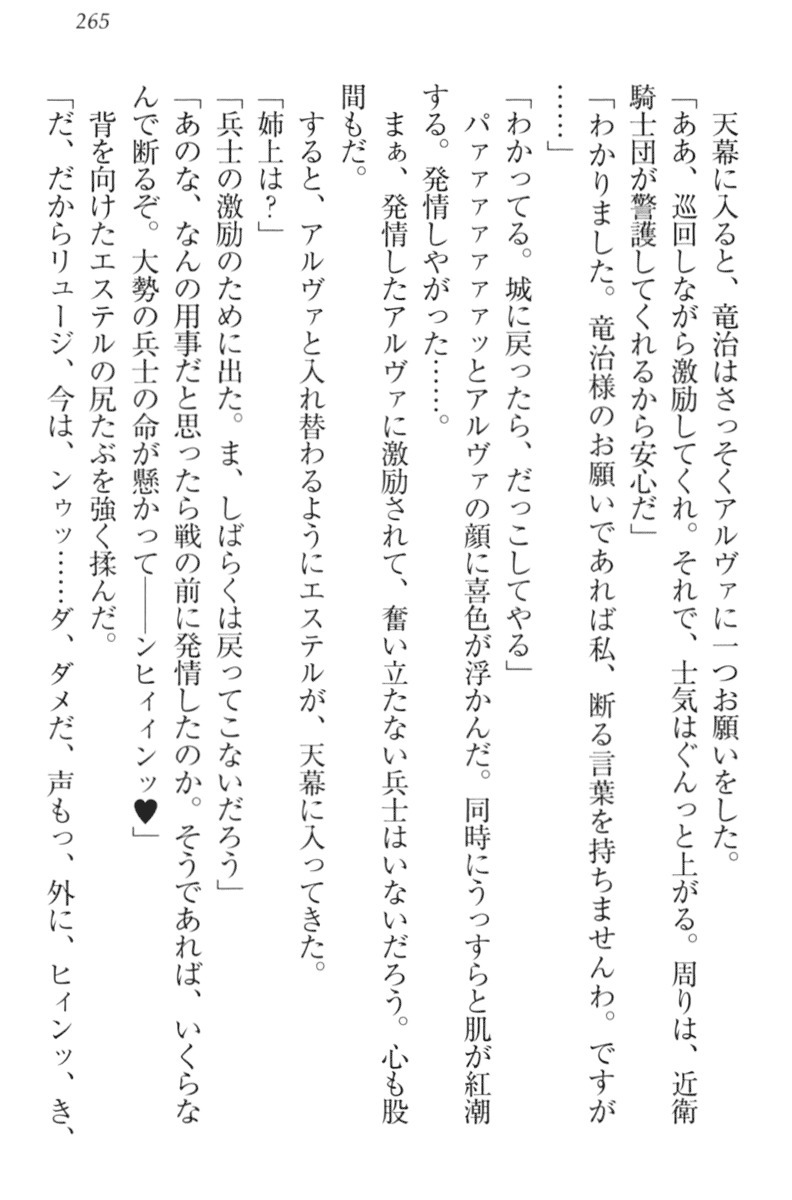 265
天幕に入ると、竜治はさっそくアルヴァに一つお願いをした。
「ああ、巡回しながら激励してくれ。それで、士気はぐんっと上がる。周りは、近衛
騎士団が警護してくれるから安心だ」
「わかりました。竜治様のお願いであれば私、断る言葉を持ちませんわ。ですが
……」
「わかってる。城に戻ったら、だっこしてやる」
パァァァァァァッとアルヴァの顔に喜色が浮かんだ。同時にうっすらと肌が紅潮
する。発情しやがった……。
まぁ、発情したアルヴァに激励されて、奮い立たない兵士はいないだろう。心も股
間もだ。
すると、アルヴァと入れ替わるようにエステルが、天幕に入ってきた。
「姉上は？」
「兵士の激励のために出た。ま、しばらくは戻ってこないだろう」
「あのな、なんの用事だと思ったら戦の前に発情したのか。そうであれば、いくらな
んで断るぞ。大勢の兵士の命が懸かって――ンヒィィンッ♥」
背を向けたエステルの尻たぶを強く揉んだ。
「だ、だからリュージ、今は、ンゥッ……ダ、ダメだ、声もっ、外に、ヒィンッ、き、